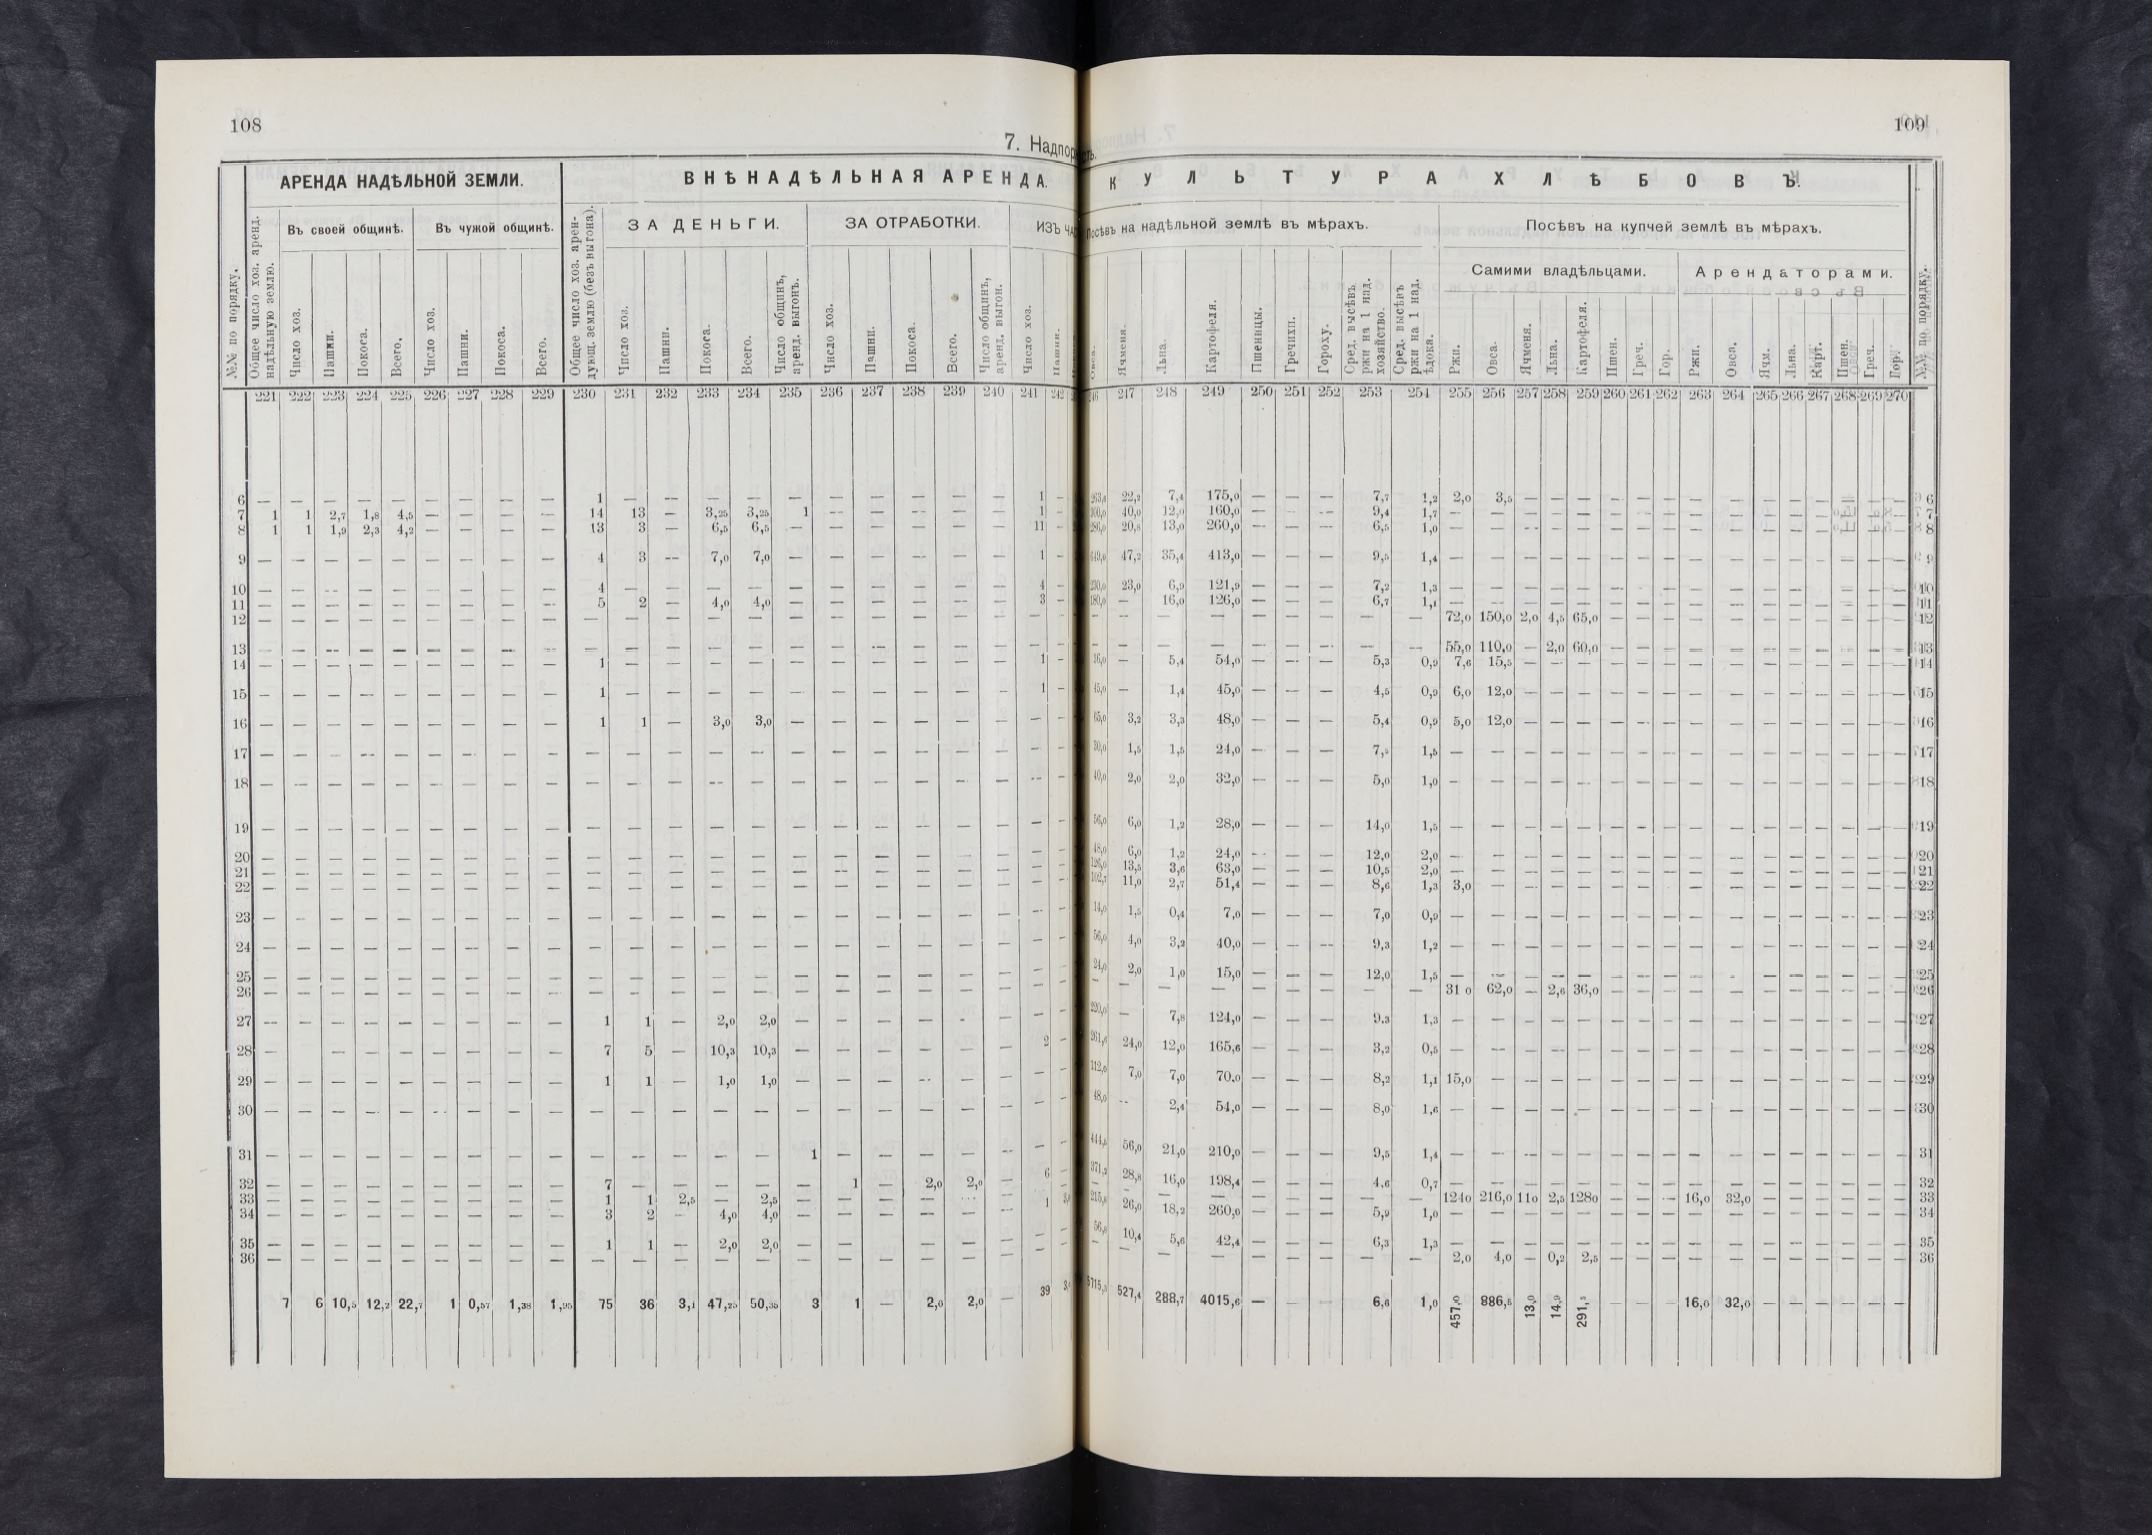 108
109
7. Надпорость.
АРЕНДА НАДѢЛЬНОЙ ЗЕМЛИ.
ВНѢНАДѢЛЬНАЯ АРЕНДА.
КУЛЬТУРА ХЛѢБОВЪ.
Въ своей общинѣ.
Въ чужой общинѣ.
ЗА ДЕНЬГИ.
ЗА ОТРАБОТКИ.
ИЗЪ
Посѣвъ на надѣльной землѣ въ мѣрахъ.
Посѣвъ на купчей землѣ въ мѣрахъ.
Самими владѣльцами.
Арендаторами.
№№ по порядку.
Общее число хоз. аренд. надѣльную землю.
Число хоз.
Пашни.
Покоса.
Всего.
Число хоз.
Пашни.
Покоса.
Всего.
Общее число хоз. арендующ. землю (безъ выгона).
Число хоз.
Пашни.
Покоса.
Всего.
Число общинъ, аренд. выгонъ.
Число хоз.
Пашни.
Покоса.
Всего.
Число общинъ, аренд. выгон.
Число хоз.
Пашни.
Овса.
Ячменя.
Льна.
Картофеля.
Пшеницы.
Гречихи.
Гороху.
Сред. высѣвъ ржи на 1 над. хозяйство.
Сред. высѣвъ ржи на 1 над. ѣдока.
Ржи.
Овса.
Ячменя.
Льна.
Картофеля.
Пшен.
Греч.
Гор.
Ржи.
Овса.
Ячм.
Льна.
Карт.
Пшен.
Греч.
Гор.
№№ по порядку.
221 222 223 224 225 226 227 228 229 230 231 232 233 234 235 236 237 238 239 240 241 242 246 247 248 249 250 251 252 253 254 255 256 257 258 259 260 261 262 263 264 265 266 267 268 269 270
6 — — — — — — — — — 1 — — — — — — — — — — 1 — 22,2 7,4 175,0 — — — 7,7 1,2 2,0 3,5 — — — — — — — — — — — — — — 6
7 1 1 2,7 1,8 4,5 — — — — 14 13 — 3,25 3,25 1 — — — — — 1 — 40,0 12,0 160,0 — — — 9,4 1,7 — — — — — — — — — — — — — — — — 7
8 1 1 1,9 2,3 4,2 — — — — 13 3 — 6,5 6,5 — — — — — — 11 — 286,0 20,8 13,0 260,0 — — — 6,5 1,0 — — — — — — — — — — — — — — — — 8
9 — — — — — — — — — 4 3 — 7,0 7,0 — — — — — — 1 — 47,2 35,4 413,0 — — — 9,5 1,4 — — — — — — — — — — — — — — — — 9
10 — — — — — — — — — 4 — — — — — — — — — — 4 — 230,0 23,0 6,9 121,9 — — — 7,2 1,3 — — — — — — — — — — — — — — — — 10
11 — — — — — — — — — 5 2 — 4,0 4,0 — — — — — — 3 — 180,0 — 16,0 126,0 — — — 6,7 1,1 — — — — — — — — — — — — — — — — 11
12 — — — — — — — — — — — — — — — — — — — — — — — — — — — — — — — 72,0 150,0 2,0 4,5 65,0 — — — — — — — — — — — 12
13 — — — — — — — — — — — — — — — — — — — — — — — — — — — — — — — 55,0 110,0 — 2,0 60,0 — — — — — — — — — — — 13
14 — — — — — — — — — 1 — — — — — — — — — — 1 — 16,0 — 5,4 54,0 — — — 5,3 0,9 7,6 15,5 — — — — — — — — — — — — — — 14
15 — — — — — — — — — 1 — — — — — — — — — — 1 — 45,0 — 1,4 45,0 — — — 4,5 0,9 6,0 12,0 — — — — — — — — — — — — — — 15
16 — — — — — — — — — 1 1 — 3,0 3,0 — — — — — — — — 65,0 3,2 3,3 48,0 — — — 5,4 0,9 5,0 12,0 — — — — — — — — — — — — — — 16
17 — — — — — — — — — — — — — — — — — — — — — — 30,0 1,5 1,5 24,0 — — — 7,5 1,5 — — — — — — — — — — — — — — — — 17
18 — — — — — — — — — — — — — — — — — — — — — — 40,0 2,0 2,0 32,0 — — — 5,0 1,0 — — — — — — — — — — — — — — — — 18
19 — — — — — — — — — — — — — — — — — — — — — — 56,0 6,0 1,2 28,0 — — — 14,0 1,5 — — — — — — — — — — — — — — — — 19
20 — — — — — — — — — — — — — — — — — — — — — — 48,0 6,0 1,2 24,0 — — — 12,0 2,0 — — — — — — — — — — — — — — — — 20
21 — — — — — — — — — — — — — — — — — — — — — — 126,0 13,5 3,6 63,0 — — — 10,5 2,0 — — — — — — — — — — — — — — — — 21
22 — — — — — — — — — — — — — — — — — — — — — — 102,7 11,9 2,7 51,4 — — — 8,6 1,3 3,0 — — — — — — — — — — — — — — — 22
23 — — — — — — — — — — — — — — — — — — — — — — 14,0 1,5 0,4 7,0 — — — 7,0 0,9 — — — — — — — — — — — — — — — — 23
24 — — — — — — — — — — — — — — — — — — — — — — 56,0 4,0 3,2 40,0 — — — 9,3 1,2 — — — — — — — — — — — — — — — — 24
25 — — — — — — — — — — — — — — — — — — — — — — 24,0 2,0 1,0 15,0 — — — 12,0 1,5 — — — — — — — — — — — — — — — — 25
26 — — — — — — — — — — — — — — — — — — — — — — — — — — — — — — — 31 0 62,0 — 2,6 36,0 — — — — — — — — — — — 26
27 — — — — — — — — — 1 1 — 2,0 2,0 — — — — — — — — 220,0 — 7,8 124,0 — — — 9.3 1,3 — — — — — — — — — — — — — — — — 27
28 — — — — — — — — 7 5 — 10,3 10,3 — — — — — — 2 — 261,6 24,0 12,0 165,6 — — — 3,2 0,5 — — — — — — — — — — — — — — — — 28
29 — — — — — — — — — 1 1 — 1,0 1,0 — — — — — — — — 112,0 7,0 7,0 70.0 — — — 8,2 1,1 15,0 — — — — — — — — — — — — — — — 29
30 — — — — — — — — — — — — — — — — — — — — — — 48,0 — 2,4 54,0 — — — 8,0 1,6 — — — — — — — — — — — — — — — — 30
31 — — — — — — — — — — — — — — 1 — — — — — — — 444,5 56,0 21,0 210,0 — — — 9,5 1,4 — — — — — — — — — — — — — — — — 31
32 — — — — — — — — — 7 — — — — — 1 — 2,0 2,0 — 6 — 371,2 28,8 16,0 198,4 — — — 4,6 0,7 — — — — — — — — — — — — — — — — 32
33 — — — — — — — — — 1 1 2,5 — 2,5 — — — — — — 1 — — — — — — — — — 124 0 216,0 11 0 2,5 128 0 — — — 16,0 32,0 — — — — — — 33
34 — — — — — — — — — 3 2 — 4,0 4,0 — — — — — — 26,0 18,2 260,0 — — — 5,9 1,0 — — — — — — — — — — — — — — — — 34
35 — — — — — — — — — 1 1 — 2,0 2,0 — — — — — — — — 56,0 10,4 5,6 42,4 — — — 6,3 1,3 — — — — — — — — — — — — — — — — 35
36 — — — — — — — — — — — — — — — — — — — — — — — — — — — — — — — 2,0 4,0 — 0,2 2,5 — — — — — — — — — — — 36
7 6 10,5 12,2 22,7 1 0,57 1,38 1,95 75 36 3,1 47,25 50,35 3 1 — 2,0 2,0 — 39 527,4 288,7 4015,6 — — — 6,6 1,0 457,0 886,5 13,0 14,9 291,5 — — — 16,0 32,0 — — — — — —